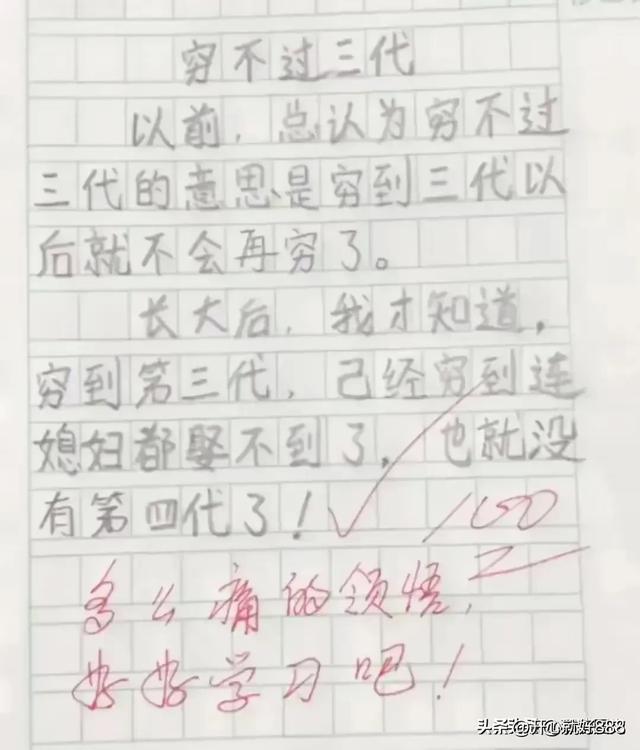 穷不过三代
以前，总认为穷不过
三代的意思是穷到三代以
后就不会再穷了。
长大后，我才知道，
穷到第三代，己经穷到连
媳妇都娶不到了，也就没
有第四代了！
100
多么痛的领悟，
好好学习吧！